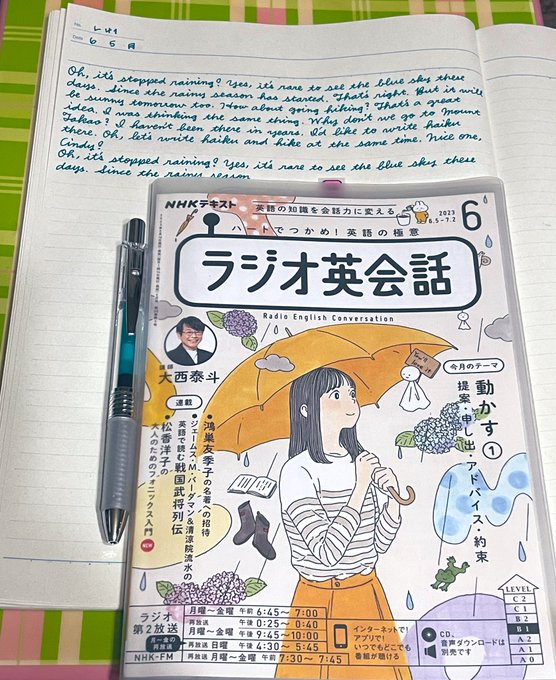 No. L 41
Date 6 5 月
Oh, it's stopped raining? Yes, it's rare to see the blue sky these
days. Since the rainy season has started. That's right. But it will
be sunny tomorrow too. How about going hiking? That's a great
idea. I was thinking the same thing. Why don't we go to Mount
Takao? I haven't been there in years. I'd like to write haiku
there. Oh, let's write haiku and hike at the same time. Nice one,
Cindy?
Oh, it's stopped raining? Yes, it's rare to see the blue sky these
days. Since the rainy season
NHKテキスト
英語の知識を会話力に変える
2023
6.5~7.2
6
ハートでつかめ!英語の極意
ラジオ英会話
Radio English Conversation
講師
大西泰斗
今月のテーマ
動かす①
提案・申し出・アドバイス・約束
連載
●鴻巣友季子の名著への招待
●ジェームス・M・バーダマン&清涼院流水の
英語で読む戦国武将列伝
●松香洋子の
大人のためのフォニックス入門
NEW
LEVEL
C2
C1
B2
B1
A2
A1
A0
ラジオ
第2放送
月~金曜 午前 6:45~7:00
再放送 午後 0:25~0:40
月曜~金曜 午後 9:45~10:00
再放送 日曜 午後 4:30~5:45
NHK-FM
再放送 月曜~金曜 午前 7:30~7:45
インターネットで!
アプリで!
いつでもどこでも
番組が聴ける
CD、
音声ダウンロードは
別売です